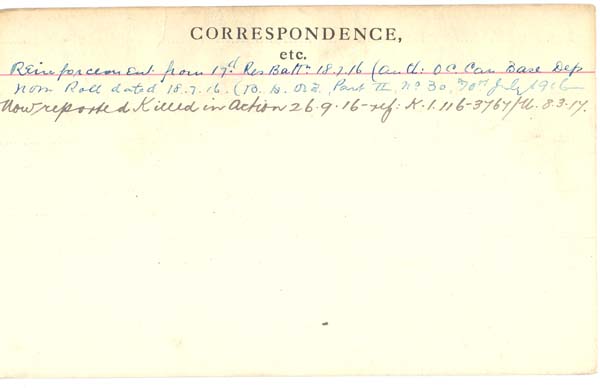 CORRESPONDENCE,
etc.
Reinforcement from 17th Res Battn 18.7.16 (Auth: OC Can Base Dep
Nom Roll dated 18.7.16. (B. D. Part II, No 30, July 1916
Now reported Killed in Action 26.9.16 - ref: K.1.116-3767/U. 8.3.17.